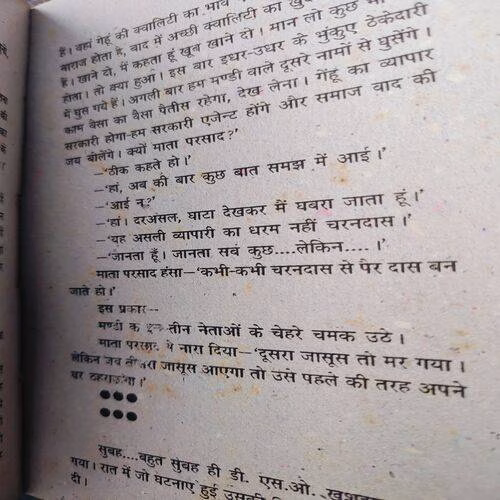 है। वहां गेहूं की क्वालिटी का भाव
नाराज होता है, बाद में अच्छी क्वालिटी का खु
है। खाने दो, मैं कहता हूं खूब खाने दो। मान लो कुछ
होता। तो क्या हुआ। इस बार इधर-उधर के भुंकुए ठेकेदारी
में घुस गये हैं। अगली बार हम मण्डी वाले दूसरे नामों से घुसेंगे।
काम वैसा का वैसा पैतीस रहेगा, देख लेना। गेंहू का व्यापार
सरकारी होगा-हम सरकारी एजेन्ट होंगे और समाज वाद की
जय बोलेंगे। क्यों माता परसाद?'
—'ठीक कहते हो।'
—'हां, अब की बार कुछ बात समझ में आई।'
—'आई नू?'
—'हां। दरअंसल, घाटा देखकर मैं घबरा जाता हूं।'
—'यह असली व्यापारी का धरम नहीं चरनदास।'
—'जानता हूँ। जानता सब कुछ....लेकिन.....।'
माता परसाद हंसा—'कभी-कभी चरनदास से पैर दास बन
जाते हो।'
इस प्रकार—
मण्डी के तीन नेताओं के चेहरे चमक उठे।
माता परसाद ने नारा दिया—'दूसरा जासूस तो मर गया।
लेकिन जब तीसरा जासूस आएगा तो उसे पहले की तरह अपने
घर ठहराऊंगा।'
सुबह....बहुत सुबह ही डी. एस.ओ.
गया। रात में जो घटनाए हुई उसकी
दी।